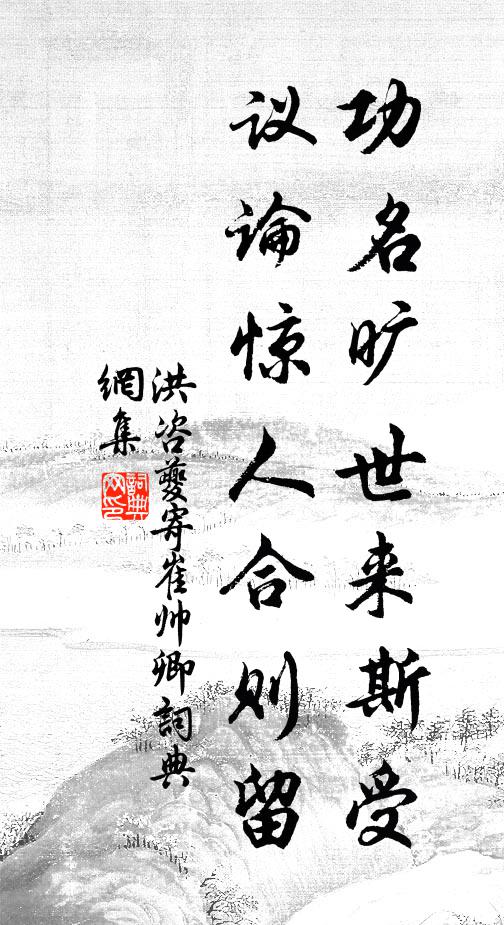 功名旷世来斯受
议论惊人合则留
洪咨夔寄崔帅卿詞典
網集
詞典
网印